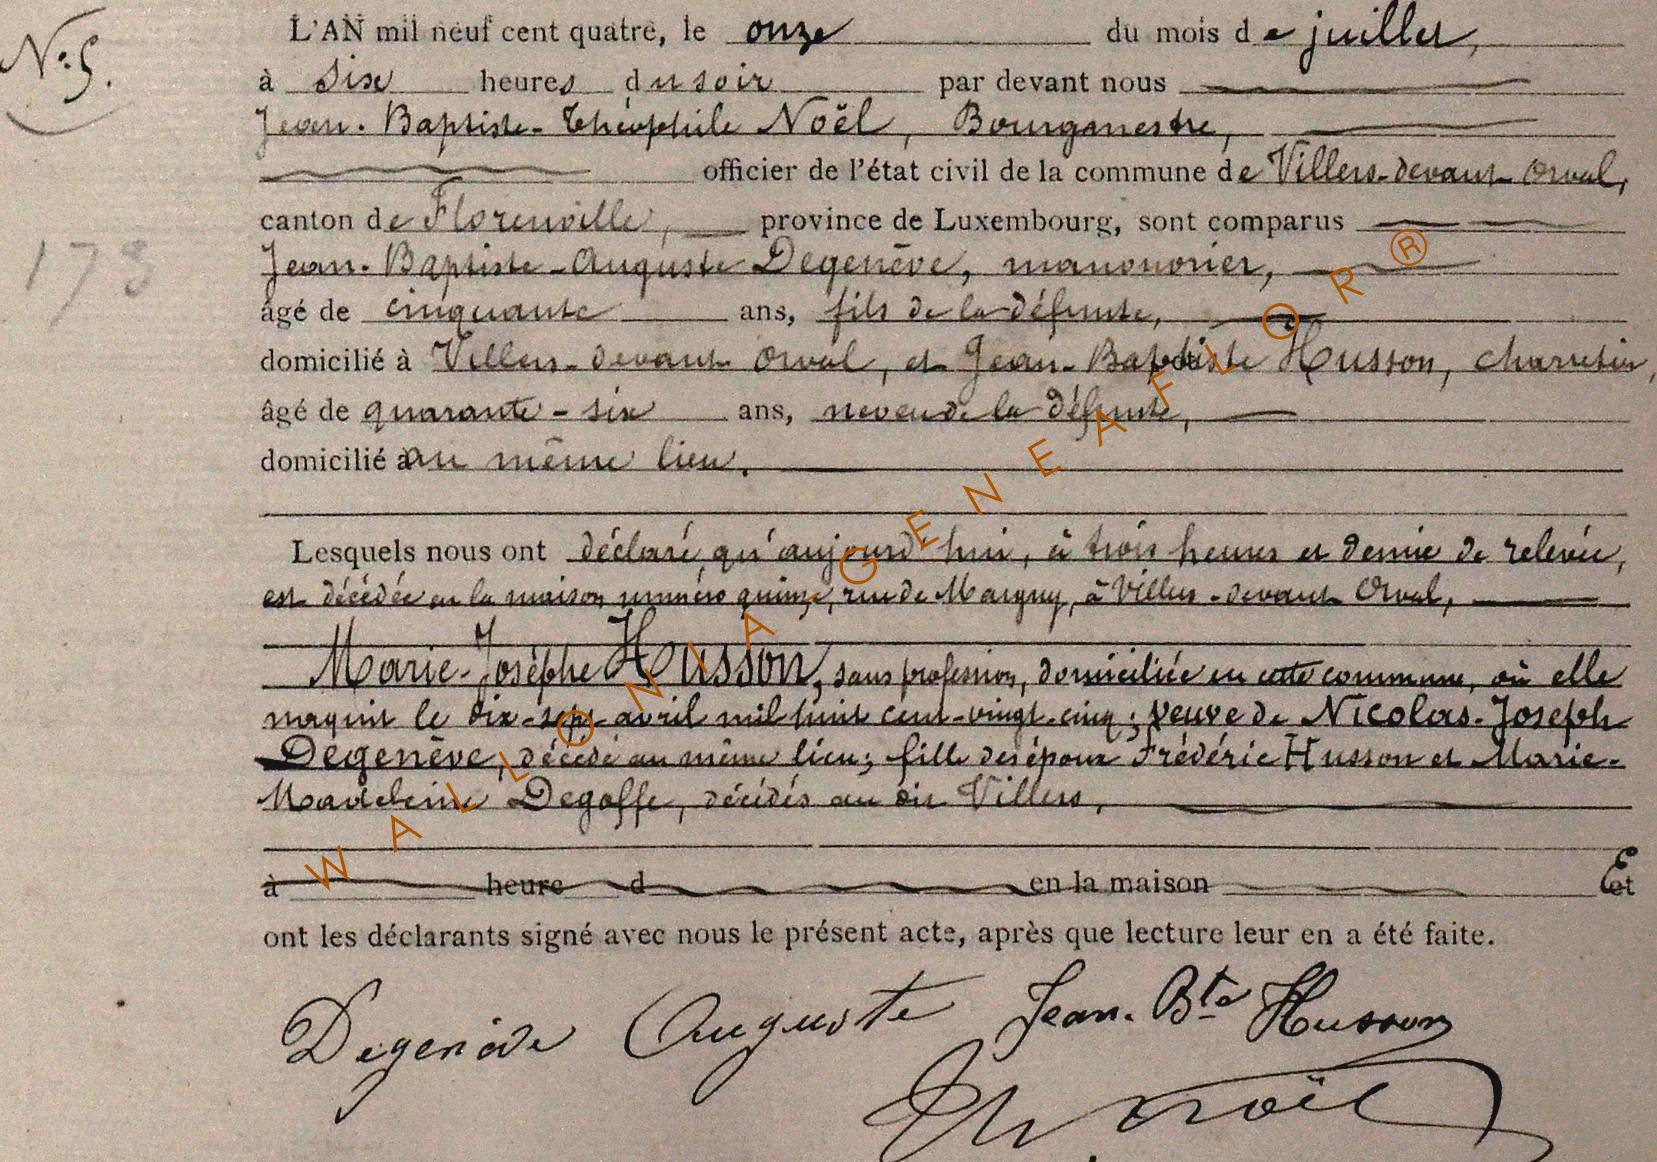 N° 5.
L'AN mil neuf cent quatre, le onze du mois de juillet,
à six heures du soir par devant nous
Jean-Baptiste-Théophile Noël, Bourgmestre,
officier de l'état civil de la commune de Villers-devant-Orval,
canton de Florenville, province de Luxembourg, sont comparus
173
Jean-Baptiste-Auguste Degenève, manouvrier,
âgé de cinquante ans, fils de la défunte,
domicilié à Villers-devant-Orval, et Jean-Baptiste Husson, charretier,
âgé de quarante-six ans, neveu de la défunte,
domicilié au même lieu.
Lesquels nous ont déclaré qu'aujourd'hui, à trois heures et demie de relevée,
est décédée en la maison numéro quinze, rue de Margny, à Villers-devant-Orval,
Marie-Josèphe Husson, sans profession, domiciliée en cette commune, où elle
naquit le dix-sept avril mil huit cent-vingt-cinq; veuve de Nicolas-Joseph
Degenève, décédé au même lieu; fille des époux Frédéric Husson et Marie-
Madeleine Degoffe, décédés au dit Villers,
à heure d en la maison Et
ont les déclarants signé avec nous le présent acte, après que lecture leur en a été faite.
Degenève Auguste Jean-Bte Husson
Th Noël
WALLONIA-GENEAFLOR®